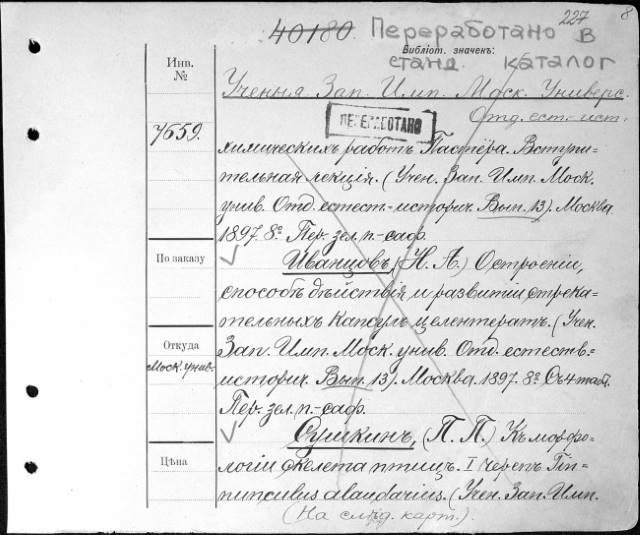 227 8
40180. Переработано в
Библіот. значекъ:
станд. каталог
Инв.
№
Ученыя Зап. Имп. Моск. Универс.
Отд. ест.-ист.
ПЕРЕРАБОТАНО
7659.
химическихъ работъ Пастёра. Вступи-
тельная лекція. (Учен. Зап. Имп. Моск.
унив. Отд. естест.-историч. Вып. 13). Москва
1897. 8º. Пер. зел. п.-саф.
По заказу
Иванцовъ, (Н. А.) О строеніи,
способѣ дѣйствія и развитіи стрека-
тельныхъ капсулъ целентератъ. (Учен.
Зап. Имп. Моск. унив. Отд. естеств.-
Откуда
Моск. унив.
историч. Вып. 13). Москва. 1897. 8º. Съ 4 таб.
Пер. зел. п.-саф.
Сушкинъ, (П. П.) Къ морфо-
Цѣна
логіи скелета птицъ. I Черепъ Tin-
nunculus alaudarius. (Учен. Зап. Имп.
(На слѣд. карт.).